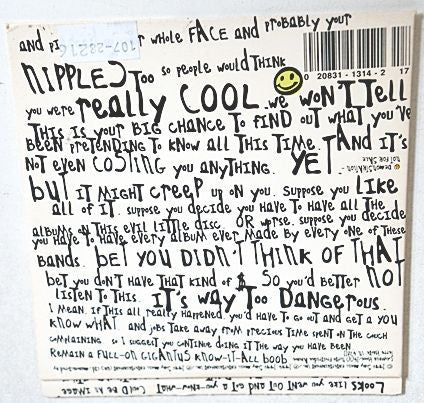 and pi r whole FACE and probably your
107-28216
NIPPLES Too so people would THINK
0 20831 - 1314 - 2 17
you were really COOL. we WON'T TELL
THIS IS your BIG CHANCE TO FIND OUT WHAT YOU'VE
BEEN PRETENDING TO KNOW ALL THIS TIME. AND IT'S
NOT EVEN COSTING YOU ANYTHING. YET
NOT FOR SALE
but IT MIGHT CREEP UP ON YOU. SUPPOSE YOU LIKE
ALL OF IT. SUPPOSE YOU DECIDE YOU HAVE TO HAVE ALL THE
ALBUMS ON THIS EVIL LITTLE DISC. OR WORSE. SUPPOSE YOU DECIDE
YOU HAVE TO HAVE EVERY ALBUM EVER MADE BY EVERY ONE OF THESE
BANDS. bet YOU DIDN'T THINK OF THAT
bet YOU DON'T HAVE THAT KIND OF $. SO YOU'D BETTER NOT
LISTEN TO THIS. IT'S WAY TOO DANGEROUS.
I MEAN. IF THIS ALL REALLY HAPPENED. YOU'D HAVE TO GO OUT AND GET A YOU
KNOW WHAT AND JOBS TAKE AWAY FROM PRECIOUS TIME SPENT ON THE COUCH
COMPLAINING. SO I SUGGEST YOU CONTINUE DOING IT THE WAY YOU HAVE BEEN
REMAIN A FULL-ON GIGANTUS KNOW-IT-ALL BOOB
LOOKS LIKE YOU WENT OUT AND GOT A YOU-KNOW-WHAT